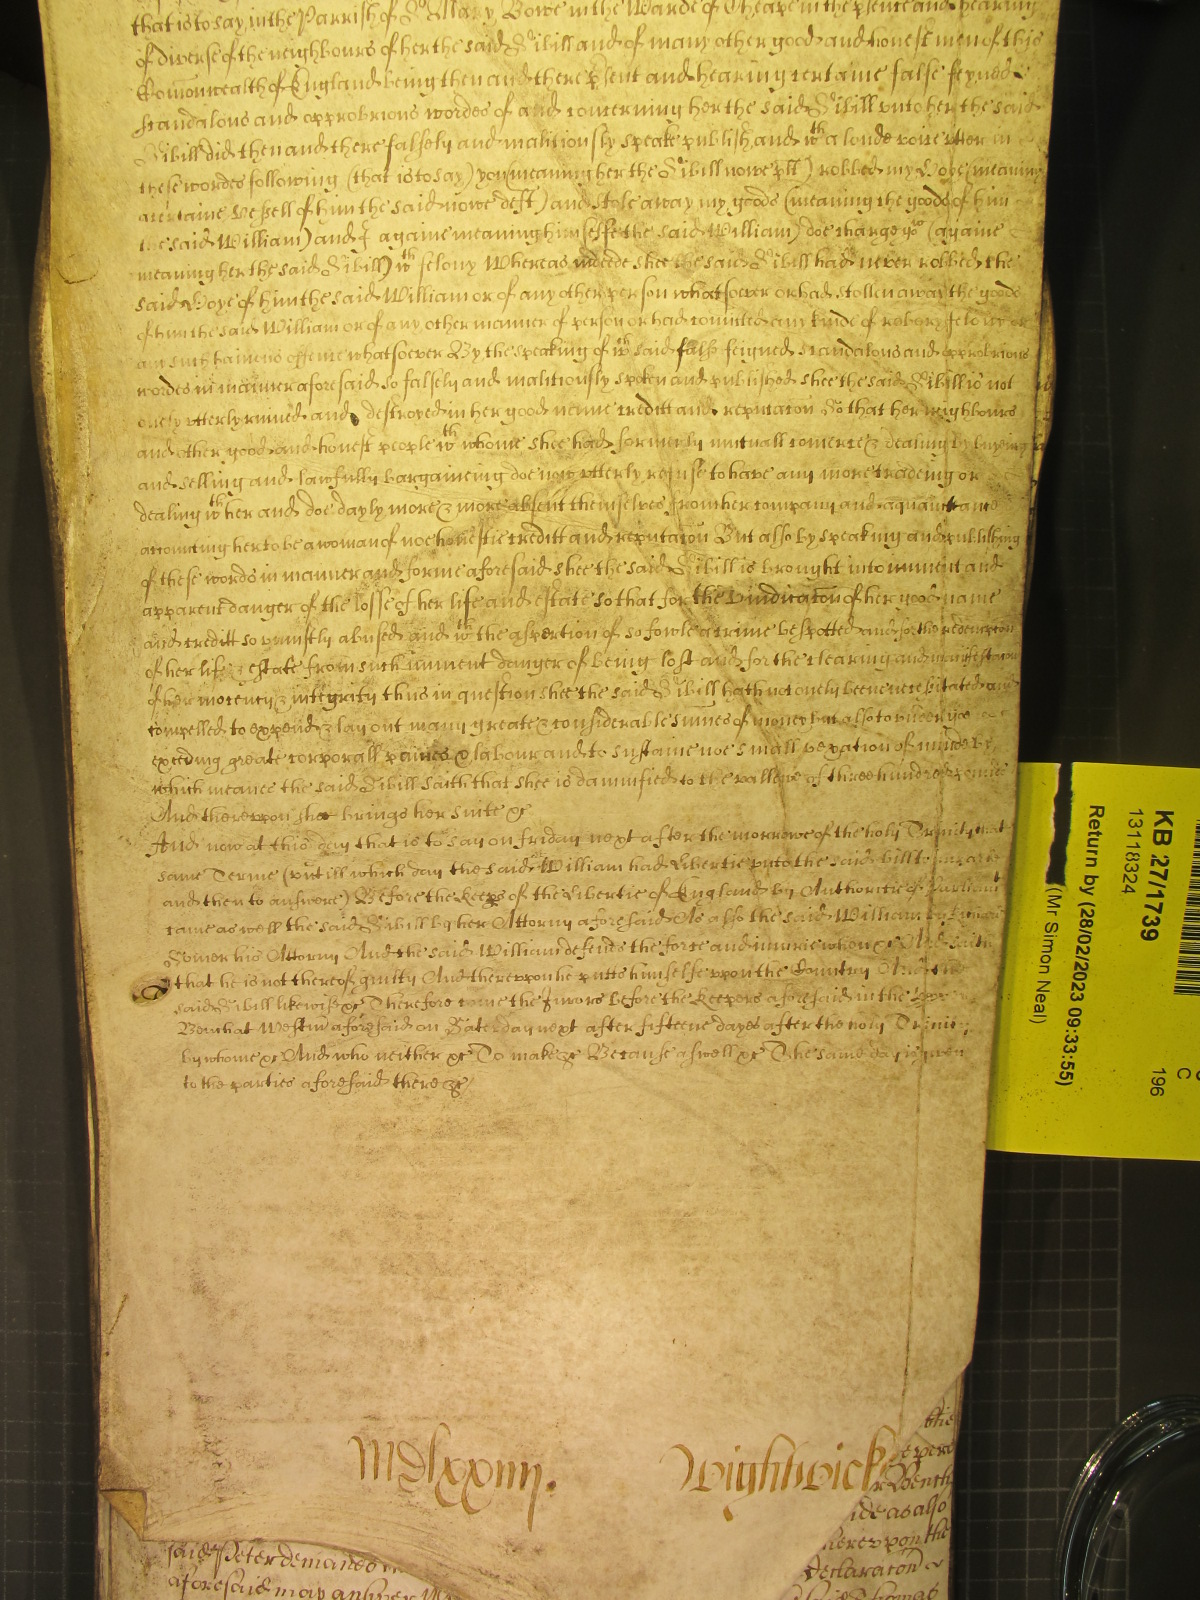 that is to say in the Parrish of St Mary Bowe in the Warde of Cheape in the psence and hearing
of diverse of the neighbours of her the said Sibill and of many other good and honest men of this
Comonwealth of England being then and there psent and hearing certaine false feyned
scandalous and opprobrious wordes of and concerning her the said Sibill unto her the said
Sibill did then and there falsely and malitiously speake publish and wth a loude voice utter in
these wordes following (that is to say) you (meaning her the Sibill nowe plt) robbed my Hoye (meaning
a certaine Vessell of him the said nowe deft) and stole away my goods (meaning the goods of him
the said William) and I againe meaning himselfe the said William) doe charge you (againe
meaning her the said Sibill) wth felony Whereas indeede shee the said Sibill had never robbed the
said Hoye of him the said William or of any other person whatsoever or had stollen away the goods
of him the said William or of any other manner of person or had comitted any kinde of robery felony or
any such hainous offence whatsoever By the speaking of wch said false feigned scandalous and opprobrious
wordes in manner aforesaid so falsely and malitiously spoken and published shee the said Sibill is not
onely utterly ruined and destroyed in her good name creditt and reputacon So that her neighbours
and other good and honest people wth whome shee had formerly mutuall comerce & dealing by buying
and selling and lawfully bargaineing doe now utterly refuse to have any more tradeing or
dealing wth her and doe dayly more & more absent themselves from her company and aquaintance
accounting her to be a woman of noe honestie creditt and reputacon But also by speaking and publishing
of these words in manner and forme aforesaid shee the said Sibill is brought into iminent and
apparent danger of the losse of her life and estate so that for the vindicacon of her good name
and creditt so uniustly abused and wth the aspertion of so fowle a crime bespotted and for the redemption
of her life & estate from such iminent danger of being lost and for the clearing and manifestacon
of her inocency & integrity thus in question shee the said Sibill hath not onely beene necessitated and
compelled to expend & lay out many greate & considerable sumes of money but also to undergoe
exceding greate corporall paines & labour and to sustaine noe small vexation of minde by
which meanes the said Sibill saith that shee is damnified to the vallewe of three hundred pounds
And thereupon shee brings her suite &c
And now at this day that is to say on Friday next after the morrowe of the holy Trinity that
same Terme (untill which day the said William had Libertie unto the said bill to imparle
and then to answere) Before the Keeps of the Libertie of England by Authoritie of Parliamt
came as well the said Sibill by her Attorny aforesaid As also the said William by
his Attorny And the said William defends the force and iniurie when &c And saith
that he is not thereof guilty And thereupon he putts himselfe upon the Country And the
said Sibill likewise &c Therefore come the Jurors before the Keepers aforesaid in the Upper
Bench at Westmr aforesaid on Saterday next after fifteene dayes after the holy Trinity
by whome &c And who neither &c To make &c Because aswell &c The same day is given
to the parties aforesaid there &c
MDlxxiiij.
Wightwick
said Peter demands
aforesaid may answer
ide as also
hereupon the
Declaracon
KB 27/1739
13118324
Return by (28/02/2023 09:33:55)
(Mr Simon Neal)
C
196